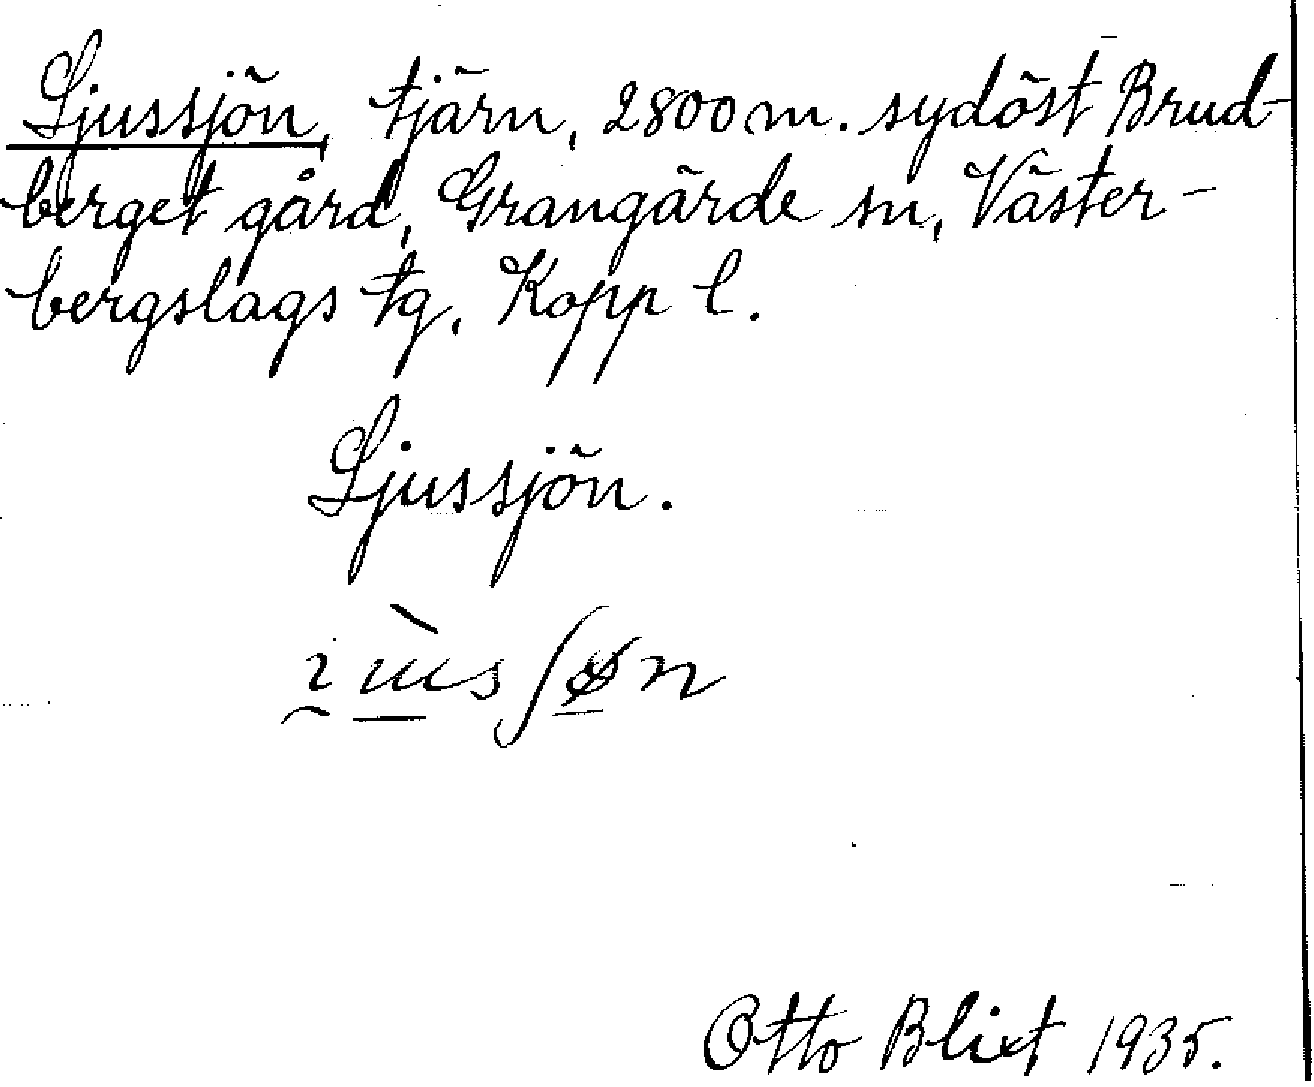 Ljussjön, tjärn, 2800 m. sydöst Brud-
berget gård, Grangärde sn, Väster-
bergslags tg. Kopp l.
Ljussjön.
Otto Blixt 1935.